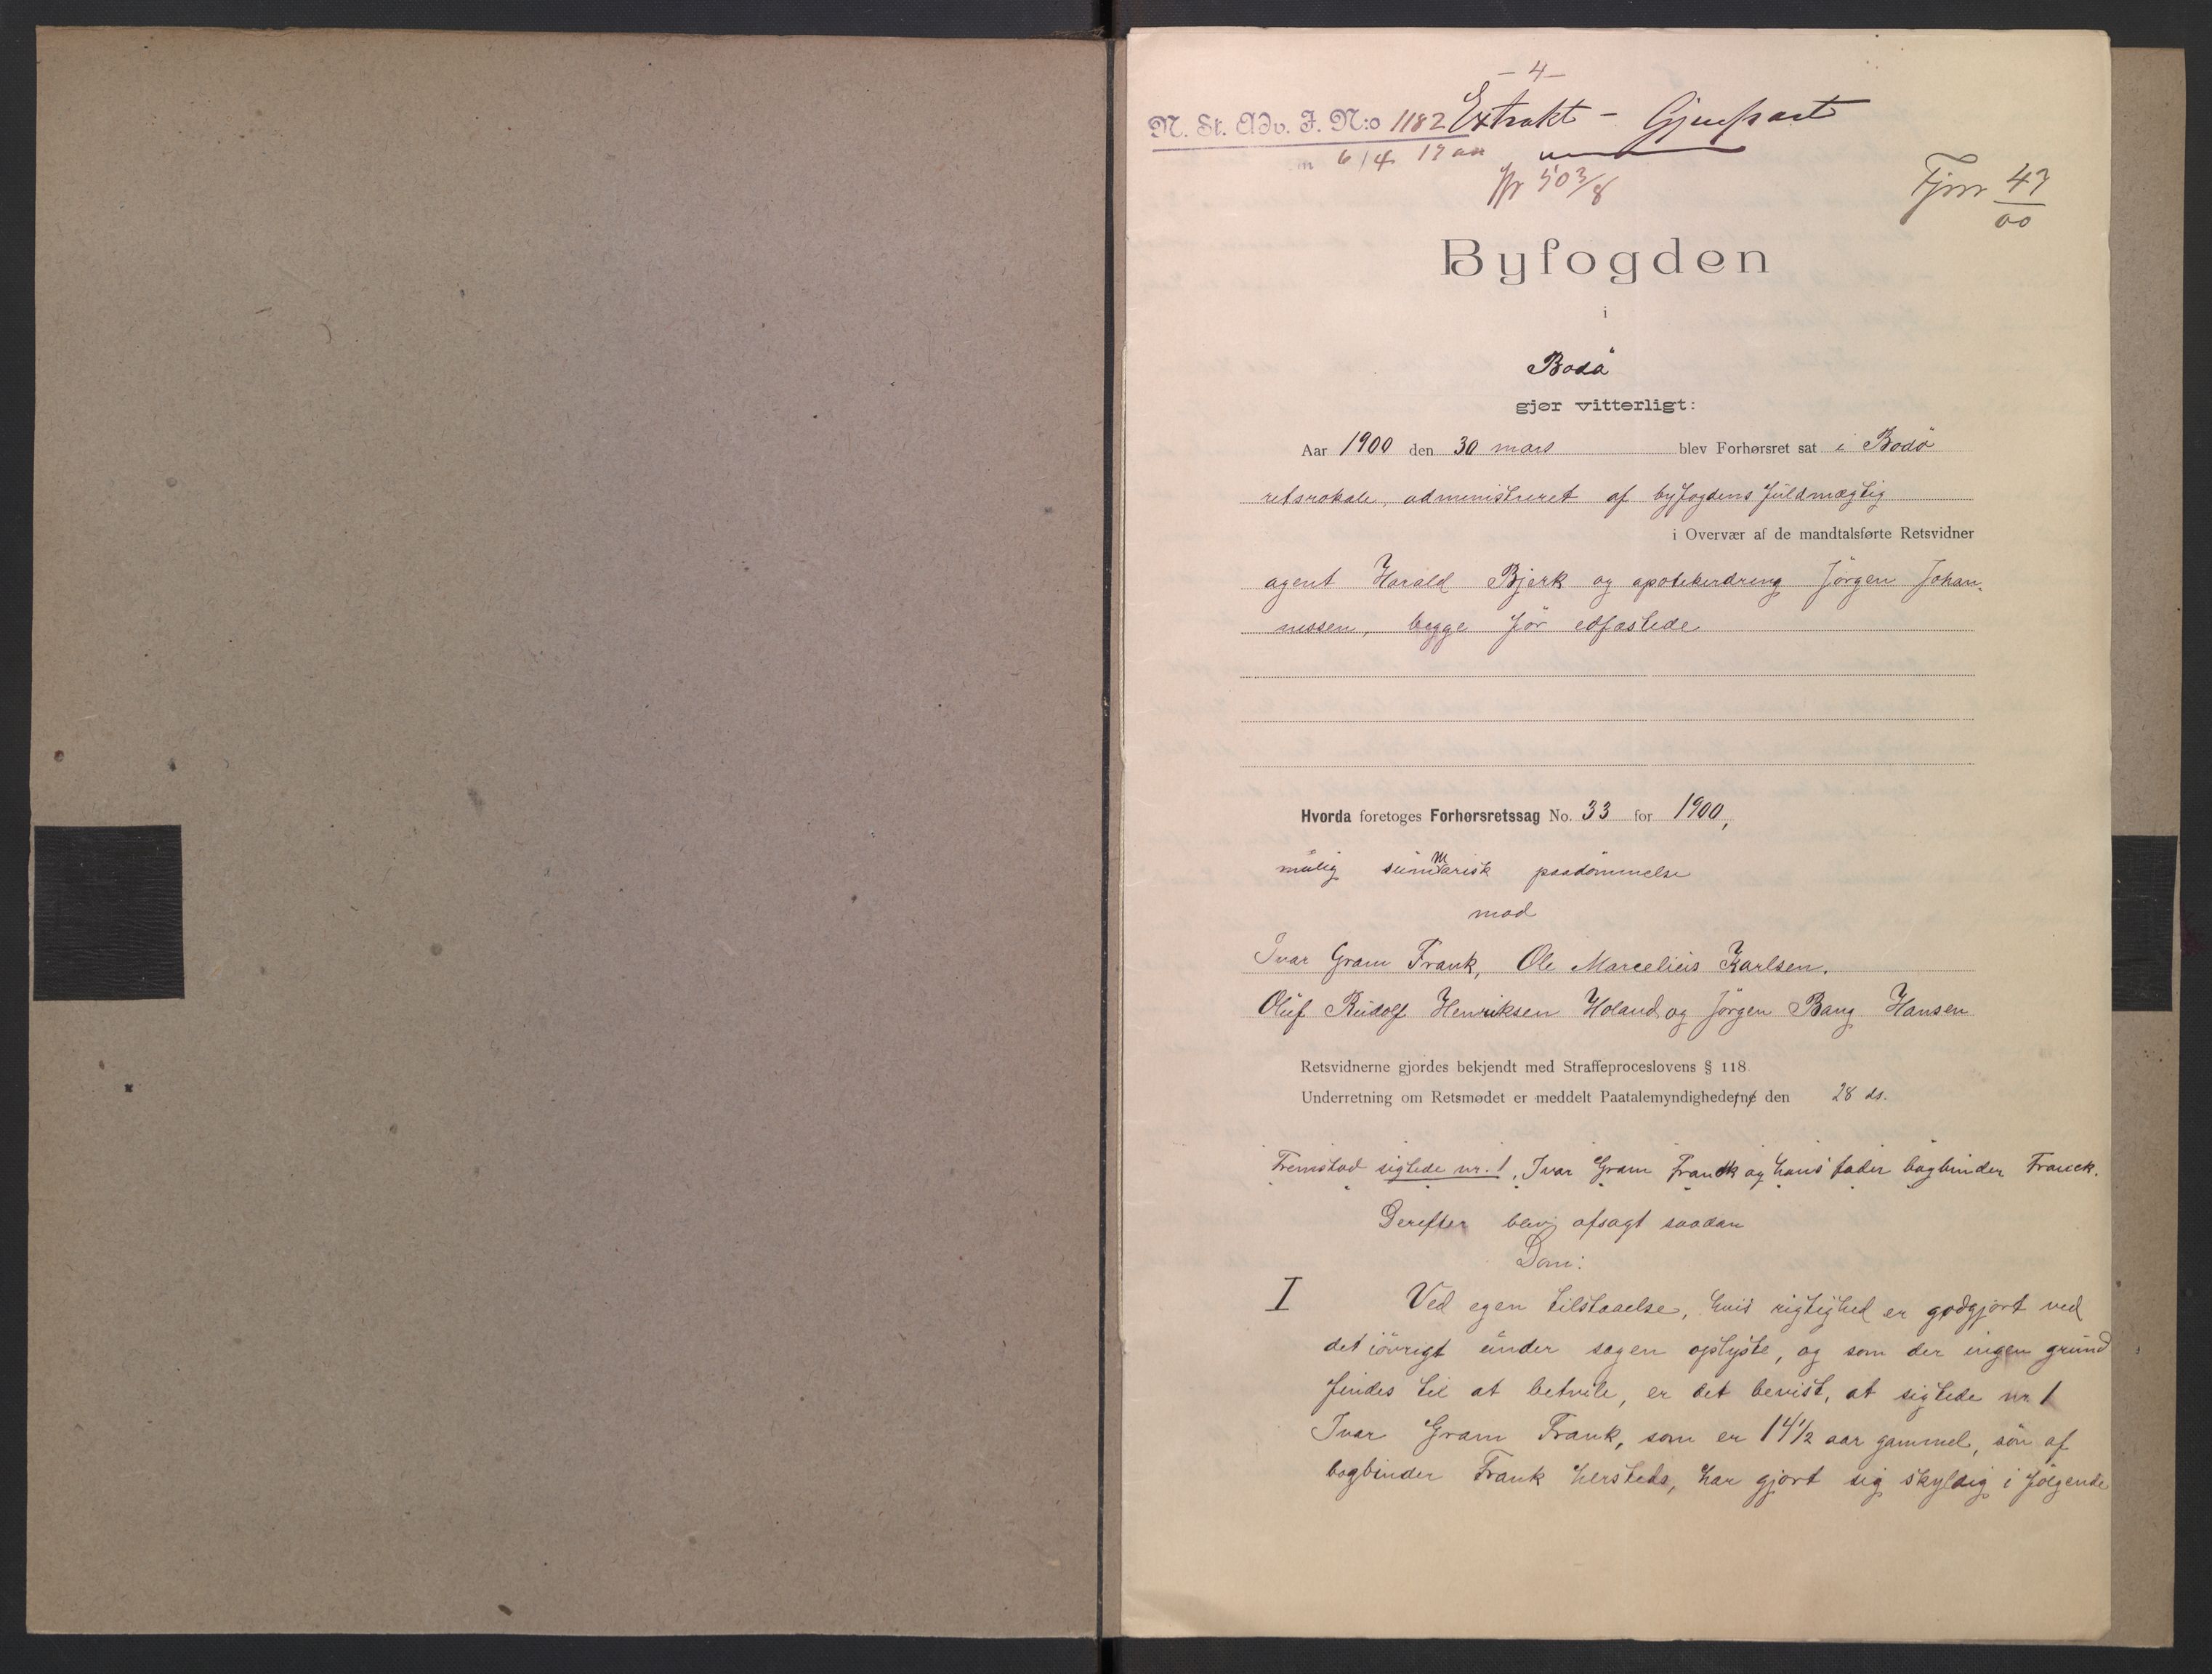 — 4 —
N. St. Adv. J. N:o 1182 Extrakt – Gjenpart
6/4 19 00
503/8
47/00
Byfogden
i
Bodö
gjør vitterligt:
Aar 1900 den 30 mars blev Forhørsret sat i Bodö
retslokale, administreret af byfogdens fuldmægtig
i Overvær af de mandtalsførte Retsvidner
agent Harald Bjerk og apothekerdreng Jörgen Johan-
nessen, begge för edfæstede
Hvorda foretoges Forhørsretssag No. 33 for 1900,
mulig summarisk paadömmelse
mod
Ivar Gram Frank, Ole Marcelius Karlsen,
Oluf Rudolf Henriksen Holand og Jörgen Bang Hansen
Retsvidnerne gjordes bekjendt med Straffeproceslovens § 118.
Underretning om Retsmødet er meddelt Paatalemyndighederne den 28 ds.
Fremstod sigtede nr. 1, Ivar Gram Franck og hans fader bogbinder Franck.
Derefter blev afsagt saadan
Dom:
I Ved egen tilstaaelse, hvis rigtighed er godgjort ved
det iövrigt under sagen oplyste, og som der ingen grund
findes til at betvile, er det bevist, at sigtede nr. 1
Ivar Gram Frank, som er 14 1/2 aar gammel, sön af
bogbinder Frank hersteds, har gjort sig skyldig i fölgende